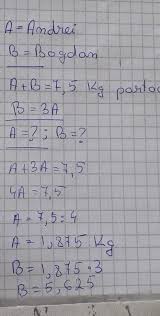 A = Andrei
B = Bogdan
A + B = 7,5 Kg
B = 3A
A = ? ; B = ?
A + 3A = 7,5
4A = 7,5
A = 7,5 : 4
A = 1,875 Kg
B = 1,875 · 3
B = 5,625